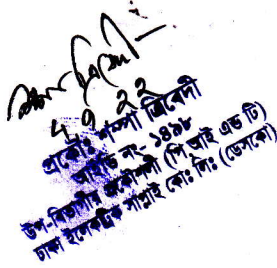 4.9.22
প্রকৌঃ শম্পা ত্রিবেদী
আইডি নং- ১৪৯৮
উপ-বিভাগীয় প্রকৌশলী (পি আই এন্ড টি)
ঢাকা ইলেকট্রিক সাপ্লাই কোঃ লিঃ (ডেসকো)